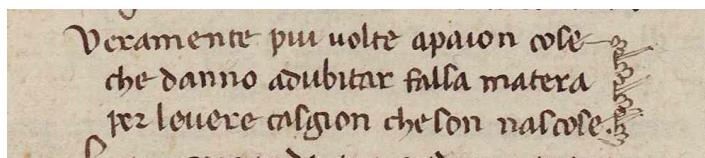 Veramente piu uolte apaion cose
che danno adubitar falsa matera
per leuere casgion che son nascose.